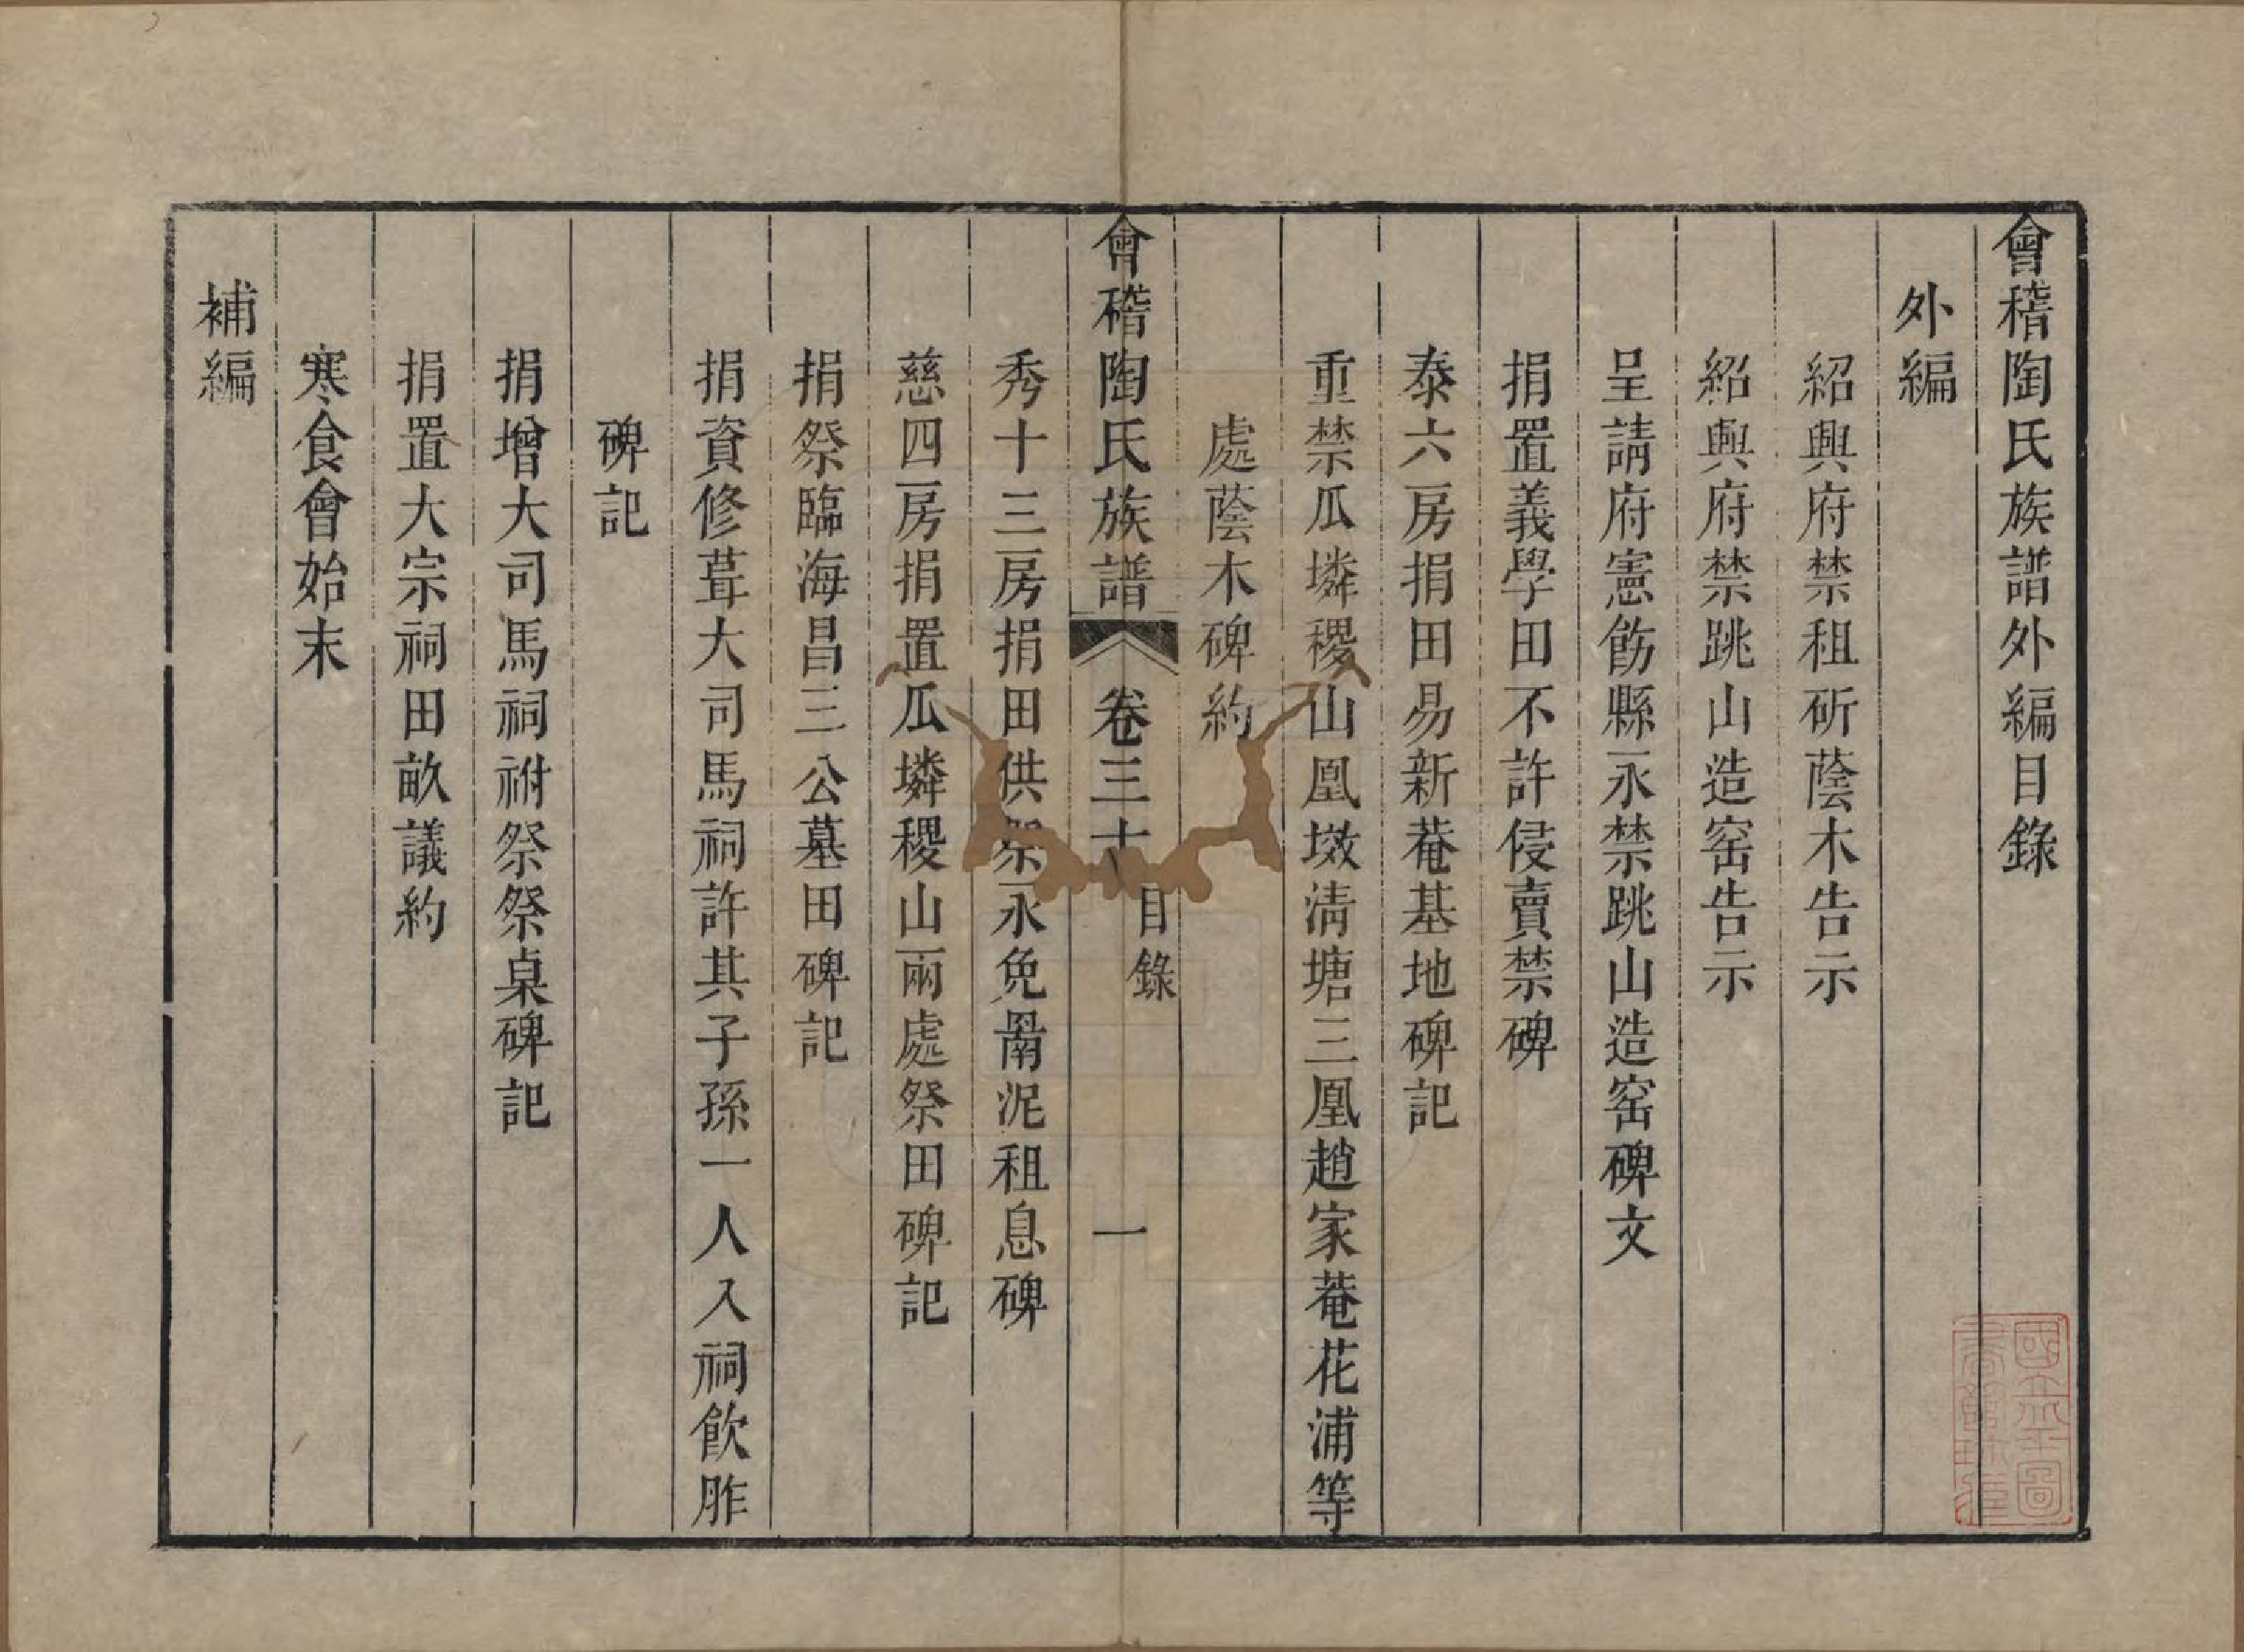 會稽陶氏族譜外編目錄
外編
紹興府禁租斫蔭木告示
紹興府禁跳山造窑告示
呈請府憲飭縣永禁跳山造窑碑文
捐置義學田不許侵賣禁碑
泰六房捐田易新菴基地碑記
重禁瓜墣稷山凰墩淸塘三凰趙家菴花浦等
處蔭木碑約
會稽陶氏族譜 卷三十 目錄 一
秀十三房捐田供祭永免罱泥租息碑
慈四房捐置瓜墣稷山兩處祭田碑記
捐祭臨海昌三公墓田碑記
捐資修葺大司馬祠許其子孫一人入祠飮胙
碑記
捐增大司馬祠祔祭祭桌碑記
捐置大宗祠田畝議約
寒食會始末
補編
國立北平圖
書館珍藏